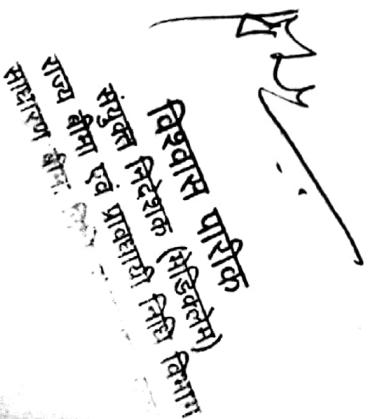 विश्वास पारीक
संयुक्त निदेशक (मेडिक्लेम)
राज्य बीमा एवं प्रावधायी निधि विभाग
साधारण